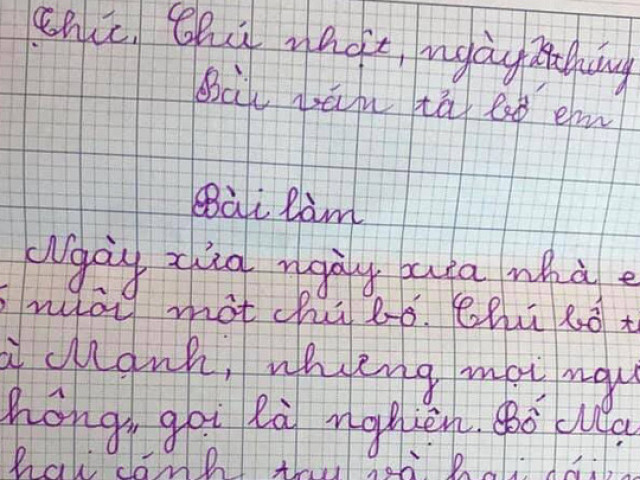 Thức, Chủ nhật, ngày 24 tháng
Bài văn tả bố em
Bài làm
Ngày xửa ngày xưa nhà e
nuôi một chú bố. Chú bố t
à Mạnh, nhưng mọi ngư
hông gọi là nghiện. Bố Mạ
hai cánh tay và hai cái